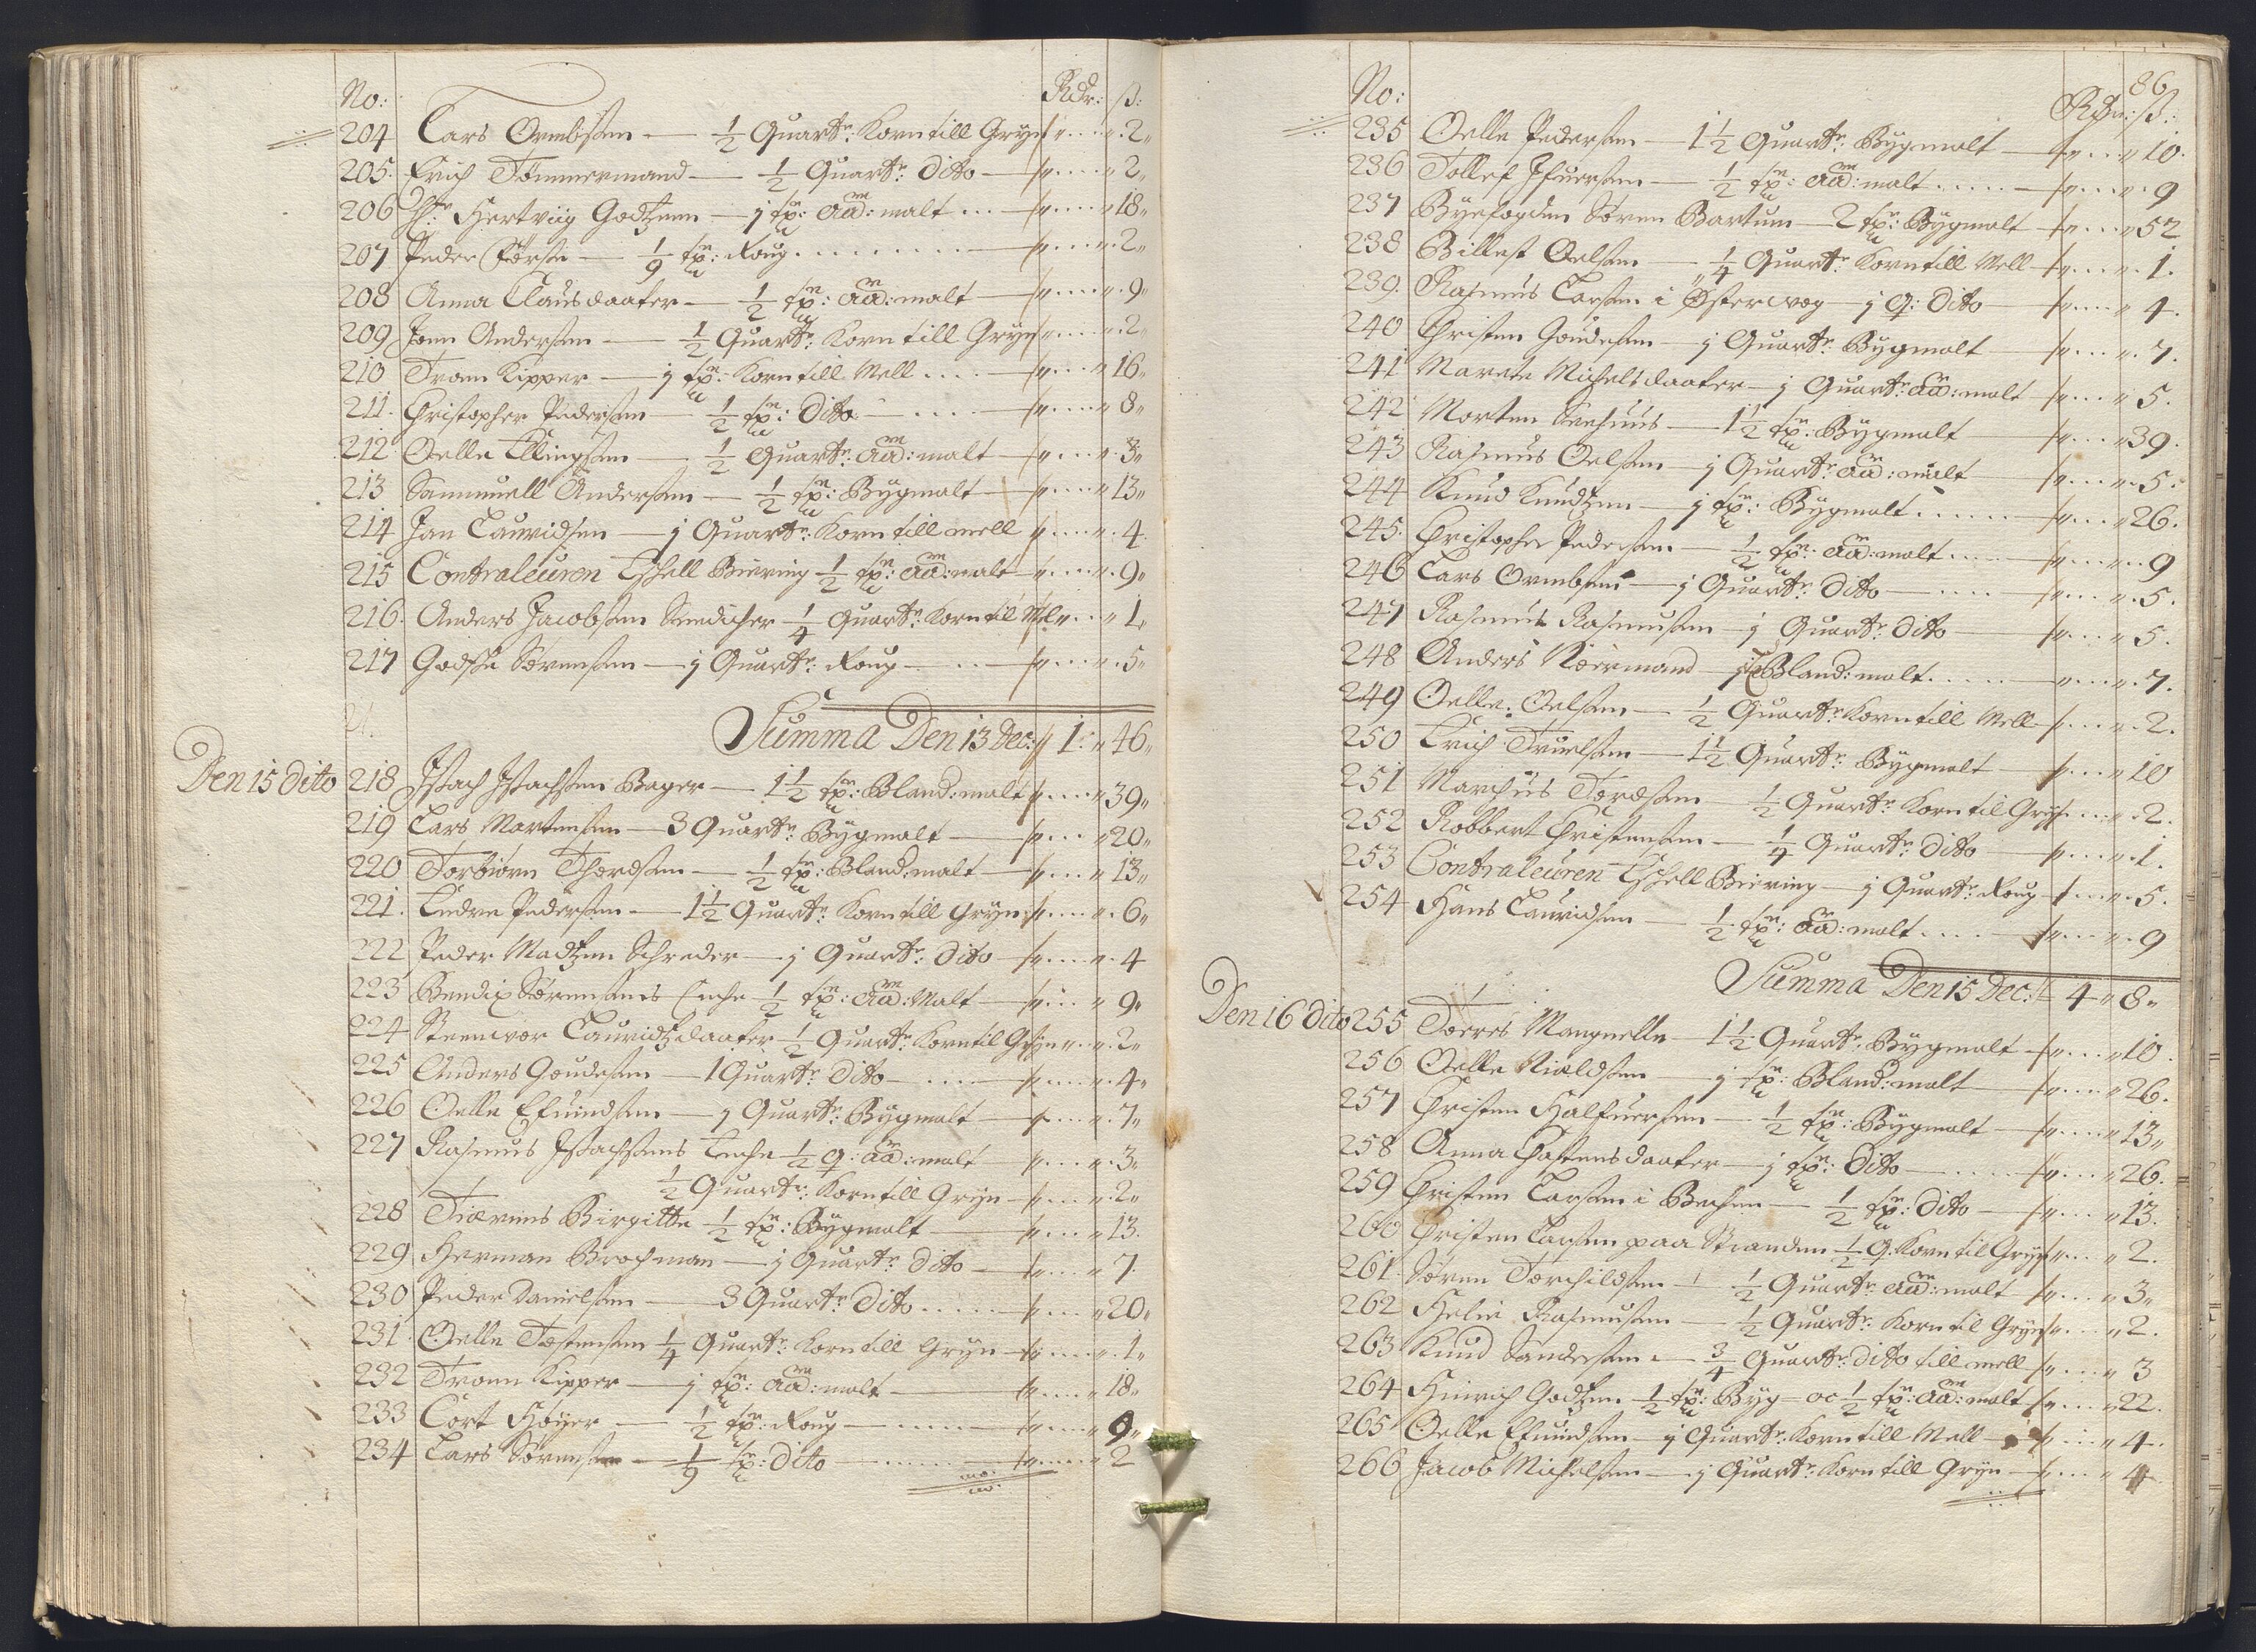 No: Rdr: ß:
204 Lars Ormbsen — 1/2 Quartr: Korn till Gryn „ 2„
205. Erich Tømmermand — 1/2 Quartr: Dito — „ 2„
206 Hr: Hertviig Godtzenn — j tøn: Aad: malt „ 18„
207 Peder — 1/9 tøn: Roug „ 2„
208 Anna Clausdaater — 1/2 tøn: Aad: malt — „ 9„
209 Jonn Andersen — 1/2 Quartr: Korn till Gryn „ 2„
210 Tronn Kipper — j tøn: Korn till Mell „ 16„
211. Christopher Pedersen — 1/2 tøn: Dito „ 8„
212. Oelle Ellingsen — 1/2 Quartr: Aad: malt — „ 3„
213 Sammuell Andersen — 1/2 tøn: Bygmalt — „ 13„
214 Jan Lauridsen — j Quartr: Korn till mell „ 4
215 Contraleuren Eschell Biering 1/2 tøn: Aad: malt — „ 9„
216. Anders Jacobsen Snedicher 1/4 Quartr: Korn til Mel „ 1„
217 Godsche Sørensen — j Quartr: Roug — „ 5„
Summa Den 13 Dec: 1: „ 46„
Den 15 Dito 218 Isach Isachsen Bager — 1 1/2 tøn: Bland: malt „ 39„
219 Lars Mortensen — 3 Quartr: Bygmalt — „ 20„
220 Torbiørn Thordsen — 1/2 tøn: Bland: malt — „ 13„
221. Endre Pedersen — 1 1/2 Quartr: Korn till Gryn „ 6„
222 Peder Madtzen Schreder — j Quartr: Dito — „ 4
223 Bendix Sørensens Enche 1/2 tøn: Aad: Malt — „ 9„
224 Steenvor Lauridtzdaater 1/2 Quartr: Korn til Gryn „ 2„
225 Anders Goudesen — 1 Quartr: Dito — „ 4„
226 Oelle Efuindsen — j Quartr: Bygmalt — „ 7„
227 Rasmus Isachsens Enche 1/2 q: Aad: malt — „ 3„
1/2 Quartr: Korn till Gryn — „ 2„
228 Birgitte 1/2 tøn: Bygmalt — „ 13.
229 Herman Brochman — j Quartr: Dito — „ 7.
230 Peder Danielsen — 3 Quartr: Dito „ 20„
231. Oelle Tostensen 1/4 Quartr: Korn till Gryn — „ 1„
232 Tronn Kipper — j tøn: Aad: malt — „ 18„
233 Cort Høyer — 1/2 tøn: Roug — „ 9„
234 Lars Sørensen — 1/9 tøn: Dito — „ 2
86
No: Rdr: ß:
235 Oelle Pedersen — 1 1/2 Quartr: Bygmalt — „ 10.
236 Tollef Ifuersen — 1/2 tøn: Aad: malt „ 9
237 Byefogden Søren Bartum — 2 tøn: Bygmalt „ 52
238 Billest Oelsen — 1/4 Quartr: Korn till Mell „ 1.
239. Rasmus Larsen i Østervog — j q: Dito „ 4.
240 Christen Goudesen — j Quartr: Bygmalt — „ 7.
241 Marete Michelsdaater — j Quartr: Aad: malt „ 5.
242 Morten Seehuus — 1 1/2 tøn: Bygmalt — „ 39.
243 Rasmus Oelsen — j Quartr: Aad: malt — „ 5.
244 Knud Knudtzen — j tøn: Bygmalt „ 26.
245. Christopher Pedersen — 1/2 tøn: Aad: malt „ 9
246 Lars Ormbsen — j Quartr: Dito — „ 5.
247 Rasmus Rasmusen — j Quartr: Dito — „ 5.
248 Anders Kiørmand — j q Bland: malt „ 7.
249 Oelle Oelsen — 1/2 Quartr: Korn till Mell „ 2.
250 Erich Truelsen — 1 1/2 Quartr: Bygmalt — „ 10
251 Marchus Tordsen 1/2 Quartr: Korn til Gryn „ 2.
252 Robbert Christensen — 1/4 Quartr: Dito — „ 1.
253 Contraleuren Eschell Biering — j Quartr: Roug „ 5.
254 Hans Lauridsen — 1/2 tøn: Aad: malt „ 9
Summa Den 15 Dec: 4 „ 8„
Den 16 Dito 255 Torres Mangnelle — 1 1/2 Quartr: Bygmalt „ 10.
256 Oelle Nieldsen — j tøn: Bland: malt — „ 26.
257 Christen Halfuersen — 1/2 tøn: Bygmalt — „ 13„
258 Anna Chastensdaater — j tøn: Dito — „ 26.
259 Christen Larsen i Bechen — 1/2 tøn: Dito — „ 13.
260 Christen Larsen paa Stranden 1/2 q. Korn til Gryn „ 2.
261. Søren Torchildsen — 1/2 Quartr: Aad: malt „ 3„
262 Helie Rasmusen — 1/2 Quartr: Korn til Gryn „ 2.
263 Knud Sandersen — 3/4 Quartr: Dito till mell „ 3
264 Hinrich Godtzen 1/2 tøn: Byg — oc 1/2 tøn: Aad: malt „ 22.
265 Oelle Efuindsen — j Quartr: Korn till Mell — „ 4.
266 Jacob Michelsen — j Quartr: Korn till Gryn — „ 4